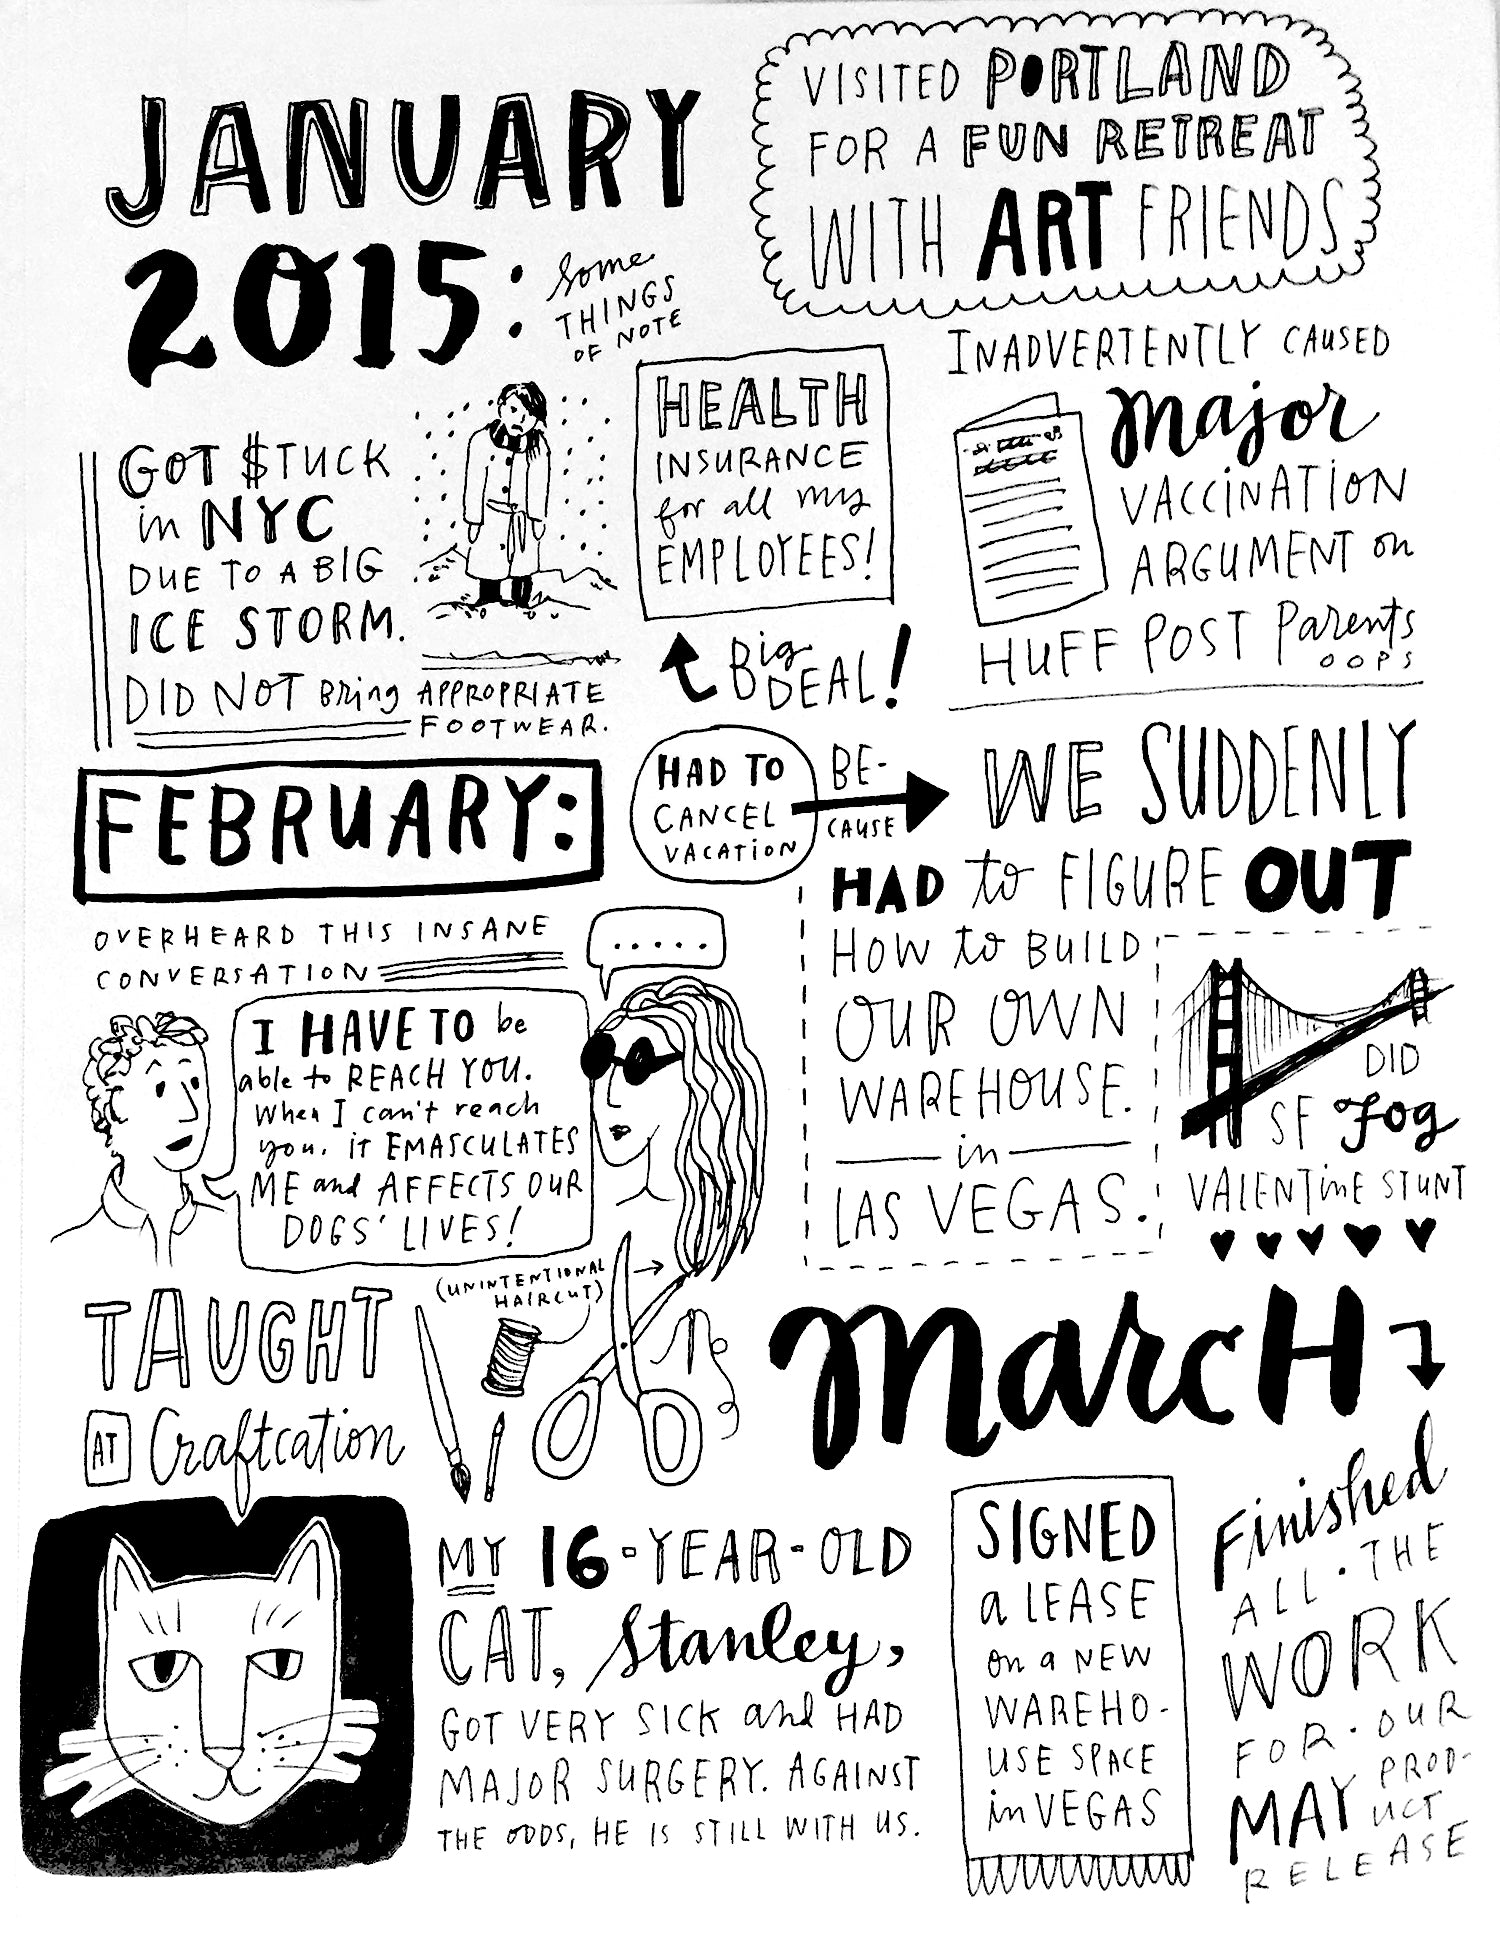 JANUARY
2015:
some
THINGS
OF NOTE
VISITED PORTLAND
FOR A FUN RETREAT
WITH ART FRIENDS
GOT $TUCK
in NYC
DUE TO A BIG
ICE STORM.
DID NOT Bring APPROPRIATE
FOOTWEAR.
HEALTH
INSURANCE
for all my
EMPLOYEES!
Big
DEAL!
INADVERTENTLY CAUSED
Major
VACCINATION
ARGUMENT on
HUFF POST Parents
OOPS
FEBRUARY:
HAD TO
CANCEL
VACATION
BE-
CAUSE
WE SUDDENLY
HAD to FIGURE OUT
HOW to BUILD
OUR OWN
WAREHOUSE.
in
LAS VEGAS.
OVERHEARD THIS INSANE
CONVERSATION
.....
I HAVE TO be
able to REACH YOU.
When I can't reach
you, it EMASCULATES
ME and AFFECTS OUR
DOGS' LIVES!
DID
SF Fog
VALENTINE STUNT
(UNINTENTIONAL
HAIRCUT)
TAUGHT
AT Craftcation
MY 16-YEAR-OLD
CAT, Stanley,
GOT VERY SICK and HAD
MAJOR SURGERY. AGAINST
THE ODDS, HE IS STILL WITH US.
MarcH
SIGNED
a LEASE
on a NEW
WAREHO-
USE SPACE
in VEGAS
Finished
ALL · THE
WORK
FOR · OUR
MAY PROD-
UCT
RELEASE